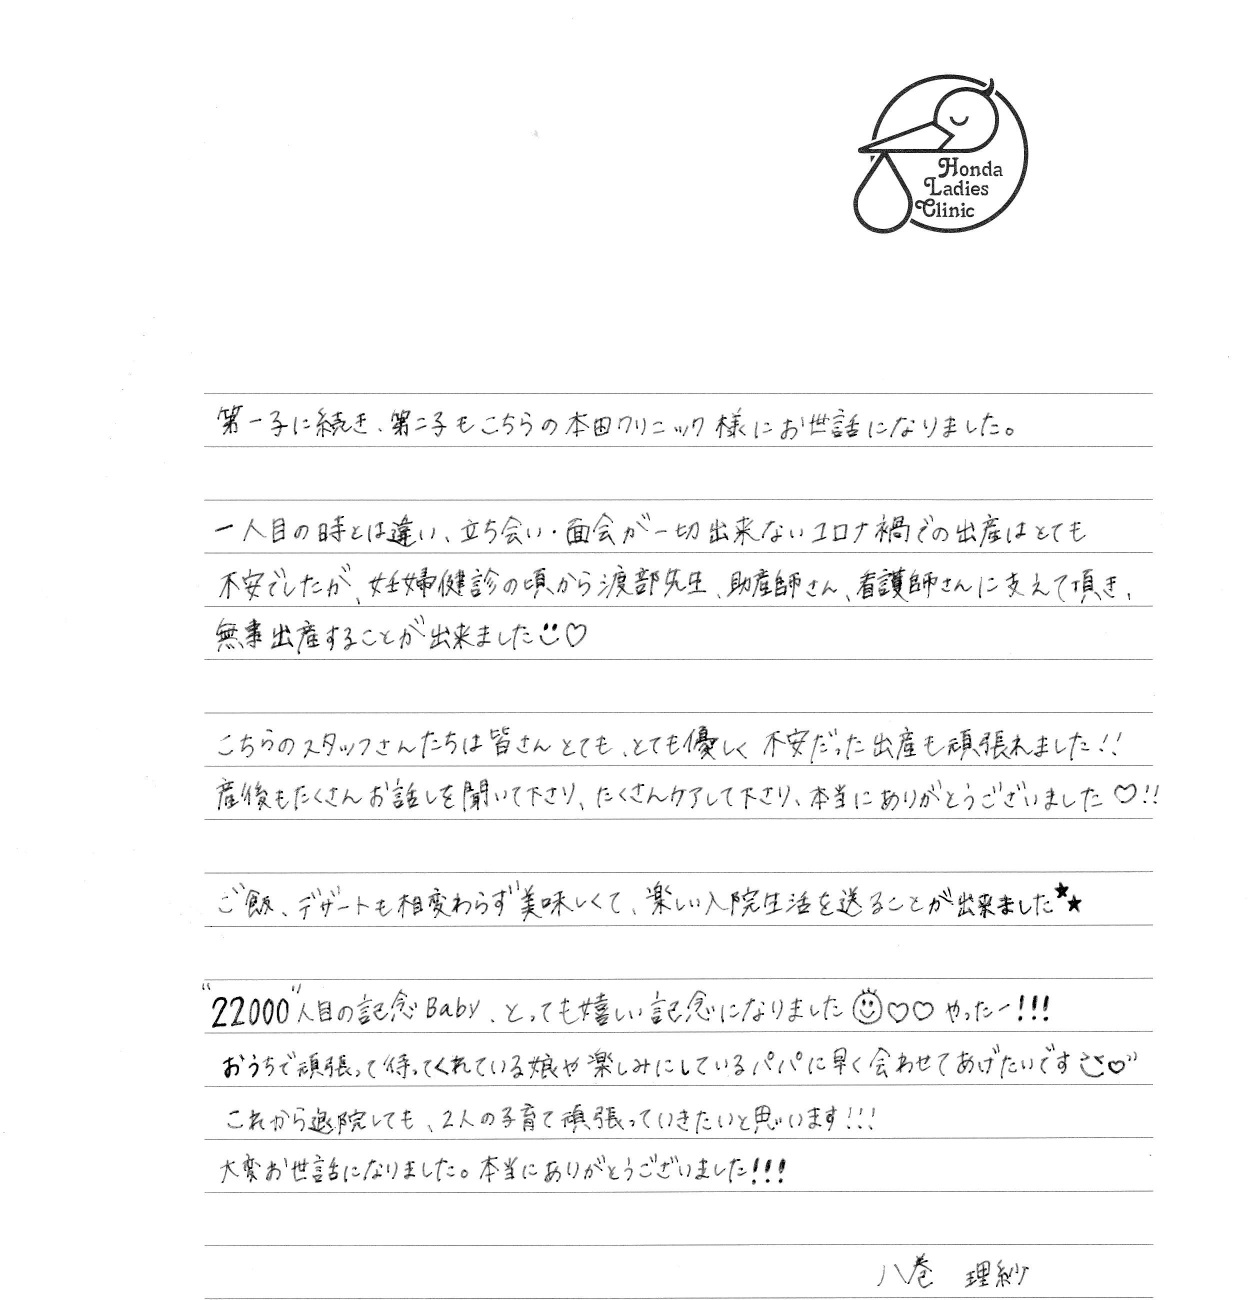 Honda
Ladies
Clinic
第一子に続き、第二子もこちらの本田クリニック様にお世話になりました。
一人目の時とは違い、立ち会い・面会が一切出来ないコロナ禍での出産はとても
不安でしたが、妊婦健診の頃から渡部先生、助産師さん、看護師さんに支えて頂き、
無事出産することが出来ました♡
こちらのスタッフさんたちは皆さんとても、とても優しく不安だった出産も頑張れました!!
産後もたくさんお話しを聞いて下さり、たくさんケアして下さり、本当にありがとうございました♡!!
ご飯、デザートも相変わらず美味しくて、楽しい入院生活を送ることが出来ました★★
"22000"人目の記念Baby、とっても嬉しい記念になりました♡♡やったー!!!
おうちで頑張って待ってくれている娘や楽しみにしているパパに早く会わせてあげたいです♡
これから退院しても、2人の子育て頑張っていきたいと思います!!!
大変お世話になりました。本当にありがとうございました!!!
八巻 理紗